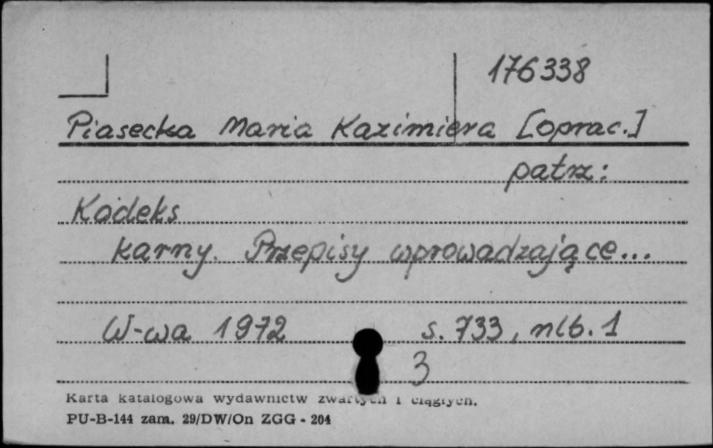 176338
Piasecka Maria Kazimiera [oprac.]
patrz:
Kodeks
karny. Przepisy wprowadzające...
W-wa 1972 s. 733, nlb. 1
3
Karta katalogowa wydawnictw zwartych i ciągłych.
PU-B-144 zam. 29/DW/On ZGG - 204